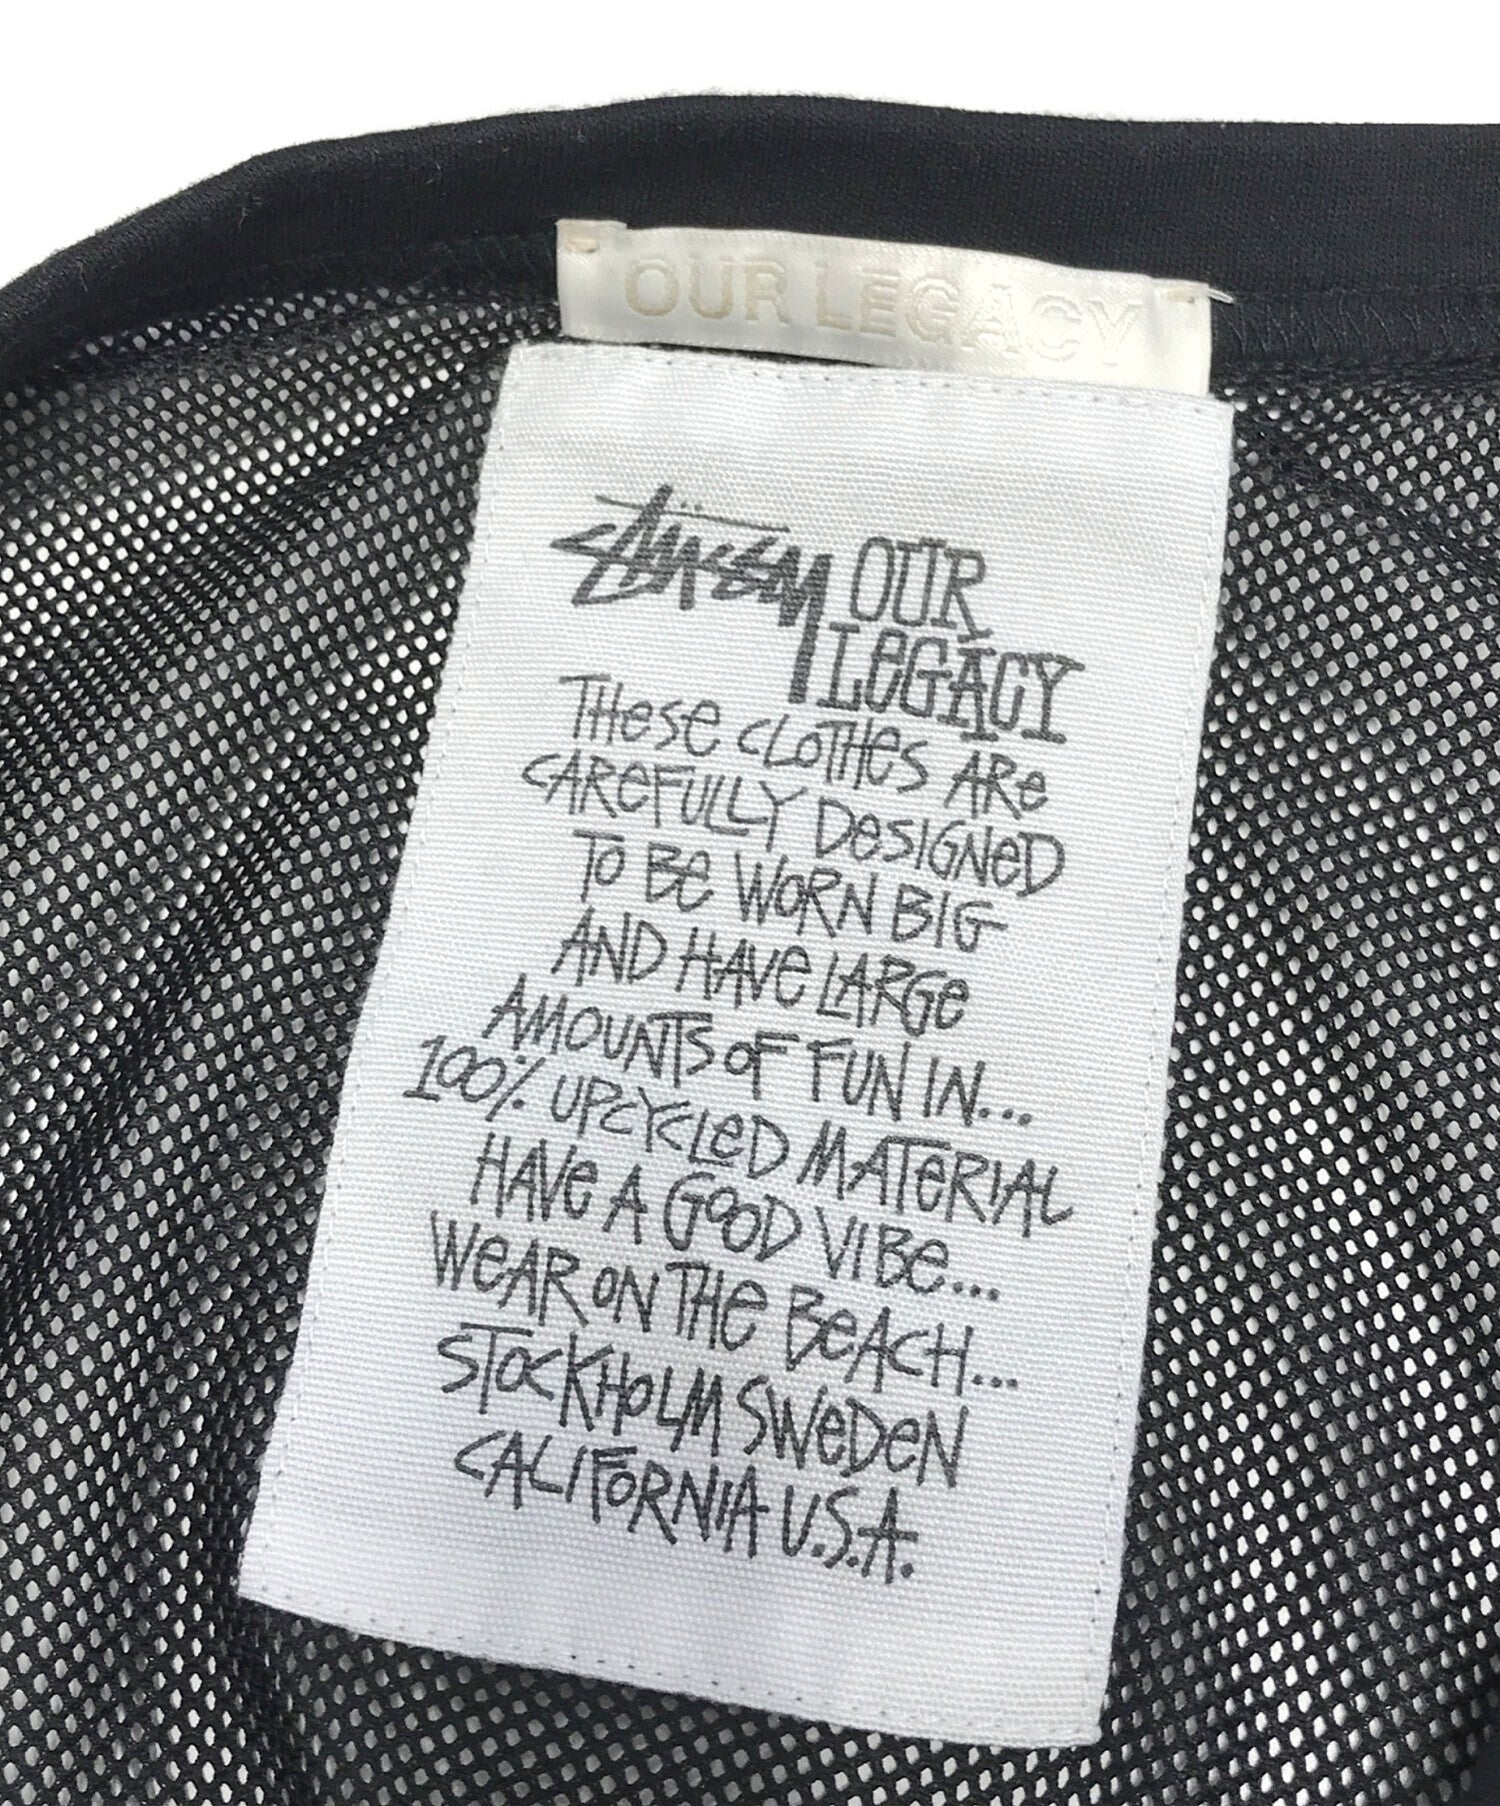 OUR LEGACY
STÜSSY OUR
LEGACY
THeSe CLOTHeS ARe
CAReFULLY DeSIGNeD
TO Be WORN BIG
AND HAVe LARGe
AMOUNTS OF FUN IN...
100% UPCYCLeD MATeRIAL
HAVe A GOOD VIBe...
WeAR ON THe BeACH...
STOCKHOLM SWeDeN
CALIFORNIA U.S.A.